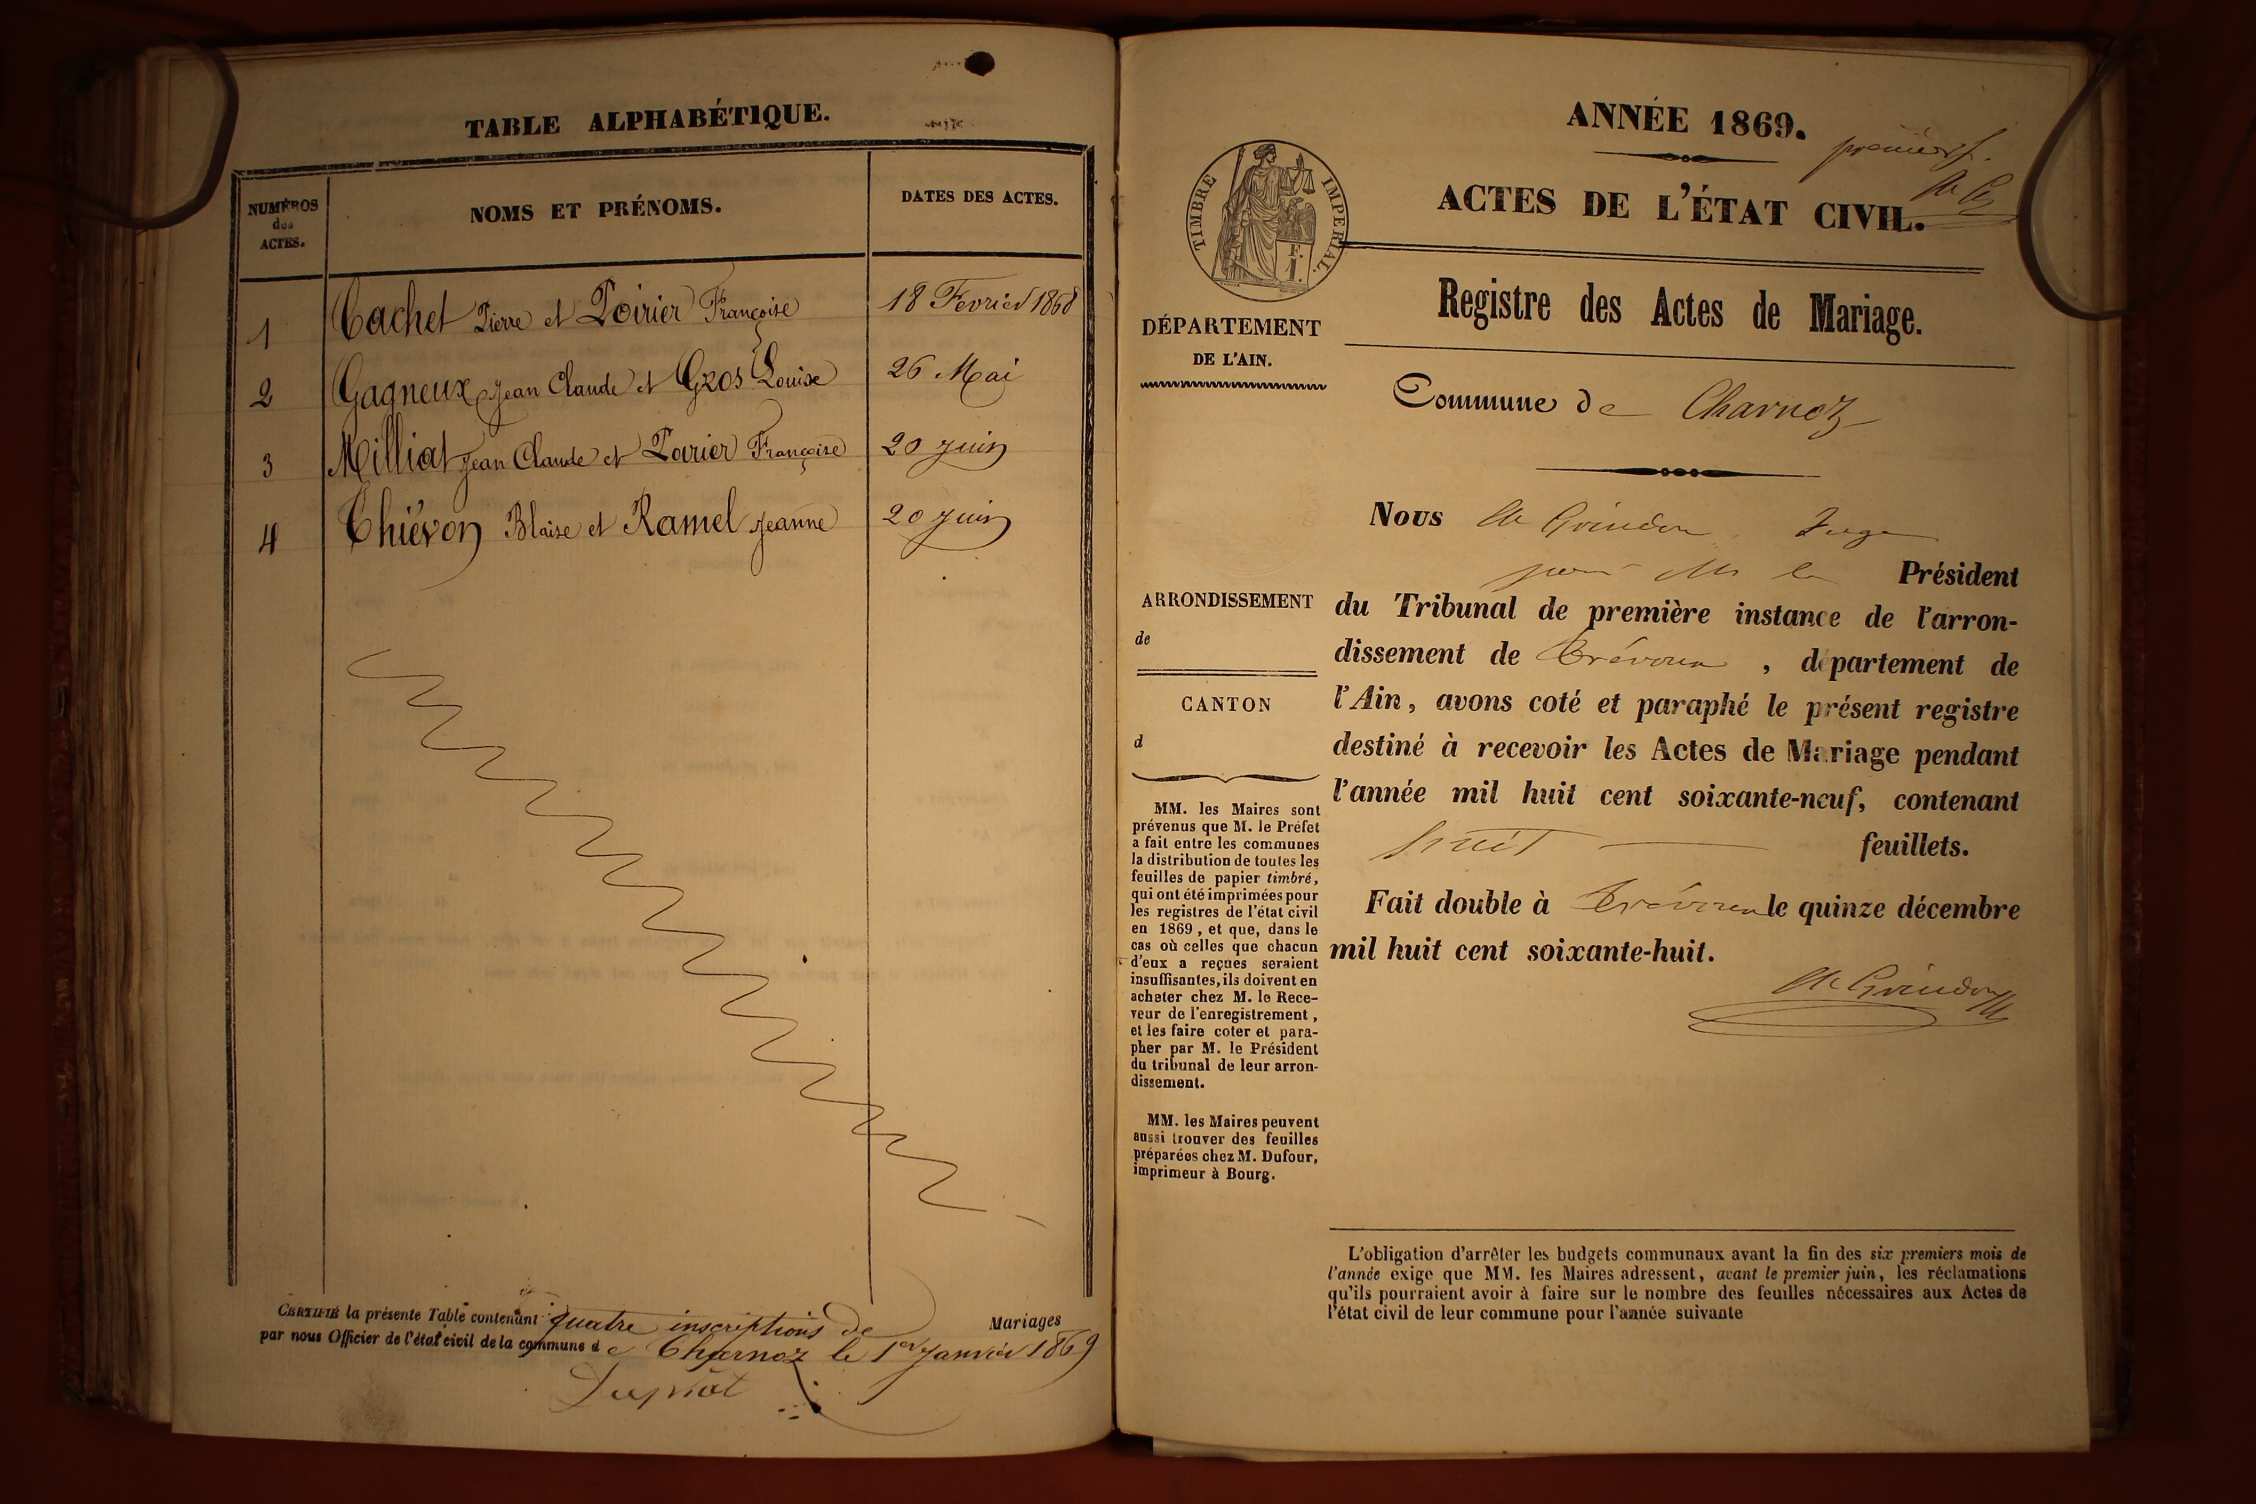 TABLE ALPHABÉTIQUE.
NUMÉROS
des
ACTES.
NOMS ET PRÉNOMS.
DATES DES ACTES.
1 Cachet Pierre et Poirier Françoise 18 Fevrier 1868
2 Gagneux Jean Claude et Gros Louise 26 Mai
3 Milliat Jean Claude et Poirier Françoise 20 juin
4 Thiévon Blaise et Ramel Jeanne 20 juin
CERTIFIÉ la présente Table contenant quatre inscriptions de Mariages
par nous Officier de l'état civil de la commune de Charnoz le 1er Janvier 1869
ANNÉE 1869.
premier f.
ACTES DE L'ÉTAT CIVIL.
TIMBRE IMPERIAL.
Registre des Actes de Mariage.
DÉPARTEMENT
DE L'AIN.
Commune de Charnoz
Nous de Grindon Juge
pour Mr le Président
du Tribunal de première instance de l'arron-
dissement de Trévoux, département de
l'Ain, avons coté et paraphé le présent registre
destiné à recevoir les Actes de Mariage pendant
l'année mil huit cent soixante-neuf, contenant
huit feuillets.
Fait double à Trévoux le quinze décembre
mil huit cent soixante-huit.
de Grindon
ARRONDISSEMENT
de
CANTON
d
MM. les Maires sont
prévenus que M. le Préfet
a fait entre les communes
la distribution de toutes les
feuilles de papier timbré,
qui ont été imprimées pour
les registres de l'état civil
en 1869, et que, dans le
cas où celles que chacun
d'eux a reçues seraient
insuffisantes, ils doivent en
acheter chez M. le Rece-
veur de l'enregistrement,
et les faire coter et para-
pher par M. le Président
du tribunal de leur arron-
dissement.
MM. les Maires peuvent
aussi trouver des feuilles
préparées chez M. Dufour,
imprimeur à Bourg.
L'obligation d'arrêter les budgets communaux avant la fin des six premiers mois de
l'année exige que MM. les Maires adressent, avant le premier juin, les réclamations
qu'ils pourraient avoir à faire sur le nombre des feuilles nécessaires aux Actes de
l'état civil de leur commune pour l'année suivante